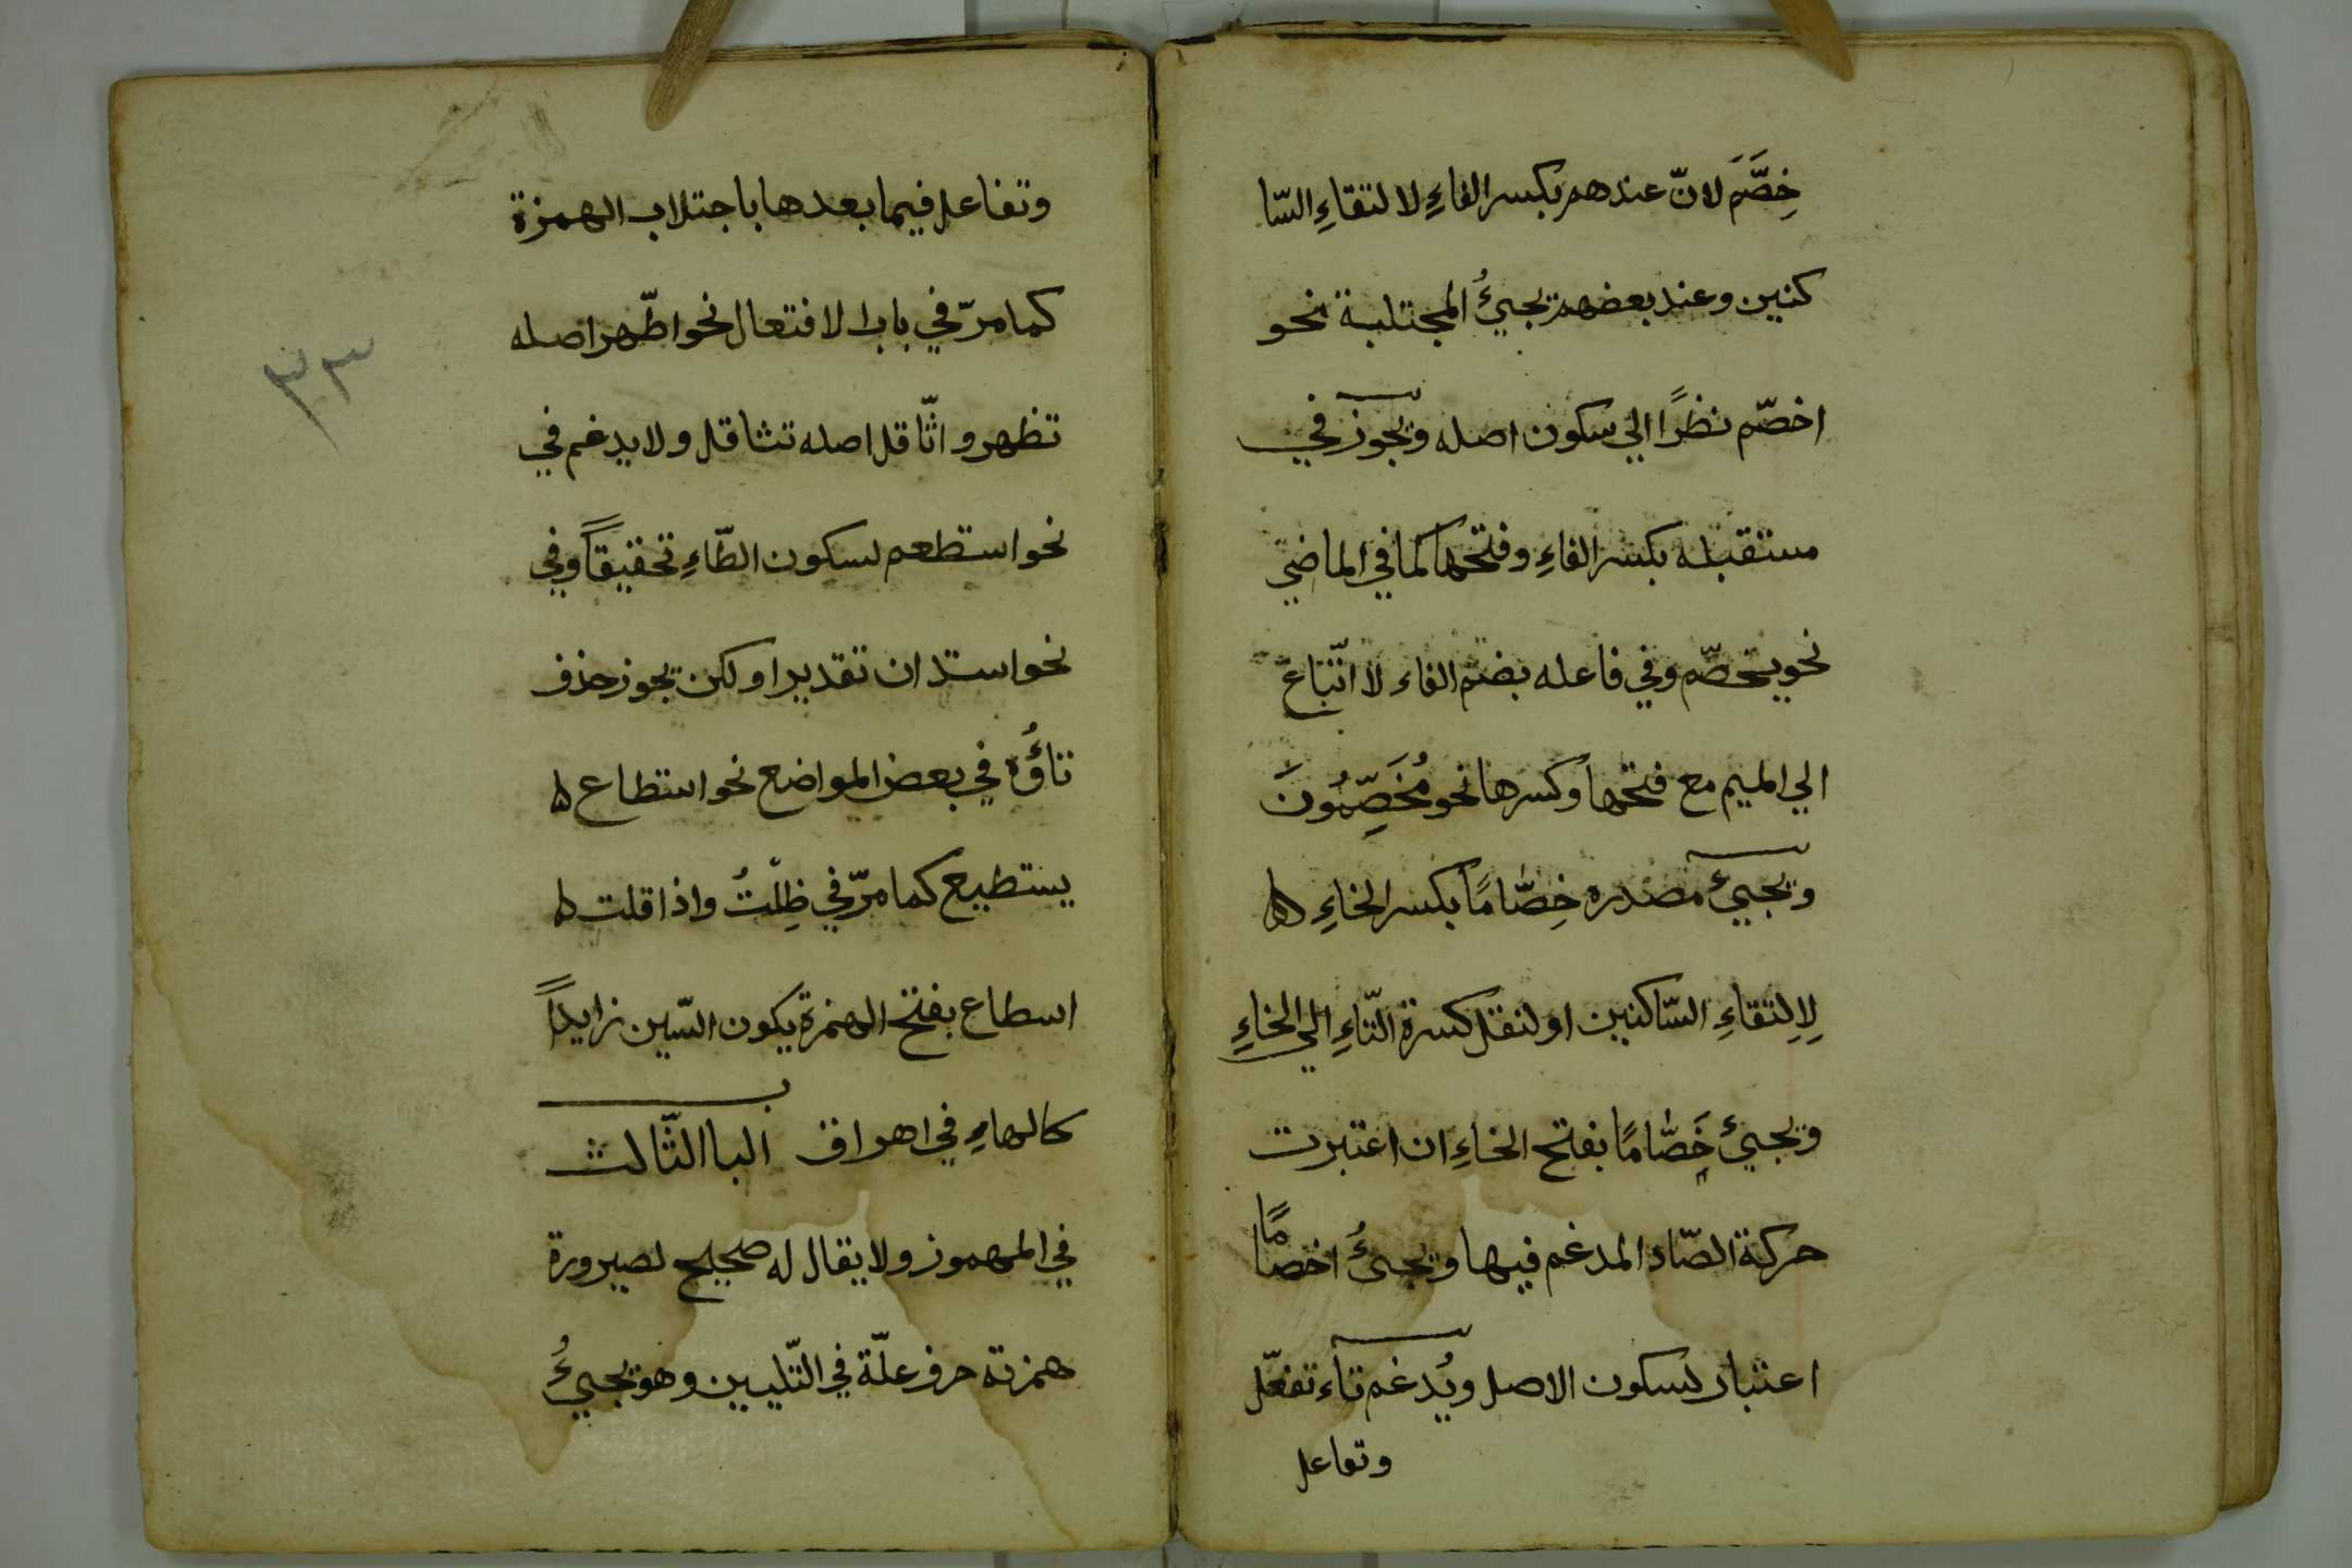 خِصَّمَ لانّ عندهم بكسر الفاءِ لا لتقاءِ السّا
كنين وعند بعضهم يجيئُ المجتلبة نحو
اخصّم نظرًا الي سكون اصله ويجوز في
مستقبله بكسر الفاءِ وفتحها كما في الماضي
نحو يخصّم وفي فاعله بضم الفاء لا اتّباع
الي الميم مع فتحها وكسرها نحو مُخَصِّمُونَ
ويجيئ مصدره خِصَّامًا بكسر الخاءِ
لِالِتقاءِ السّاكنين او لنقل كسرة التّاءِ الي الخاءِ
ويجيئ خَصَّامًا بفتح الخاءِ ان اعتبرت
حركة الصّاد المدغم فيها ويجيئُ اخصّامًا
اعتبار لسكون الاصل ويُدغم تاء تفعّل
وتفاعل
وتفاعل فيما بعدها باجتلاب الهمزة
كما مرّ في باب الافتعال نحو اطّهر اصله
تظهر واثّاقل اصله تثاقل ولا يدغم في
نحو استطعم لسكون الطّاءِ تحقيقاً وفي
نحو استدان تقديرا ولكن يجوز حذف
تاؤُه في بعض المواضع نحو استطاع
يستطيع كما مرّ في ظِلْتُ واذا قلت
اسطاع بفتح الهمزة يكون السّين زايداً
كالهاءِ في اهراق البا الثّالث
في المهموز ولا يقال له صحيح لصيرورة
همزته حرف علّة في التّليين وهو يجيئُ
٣٣